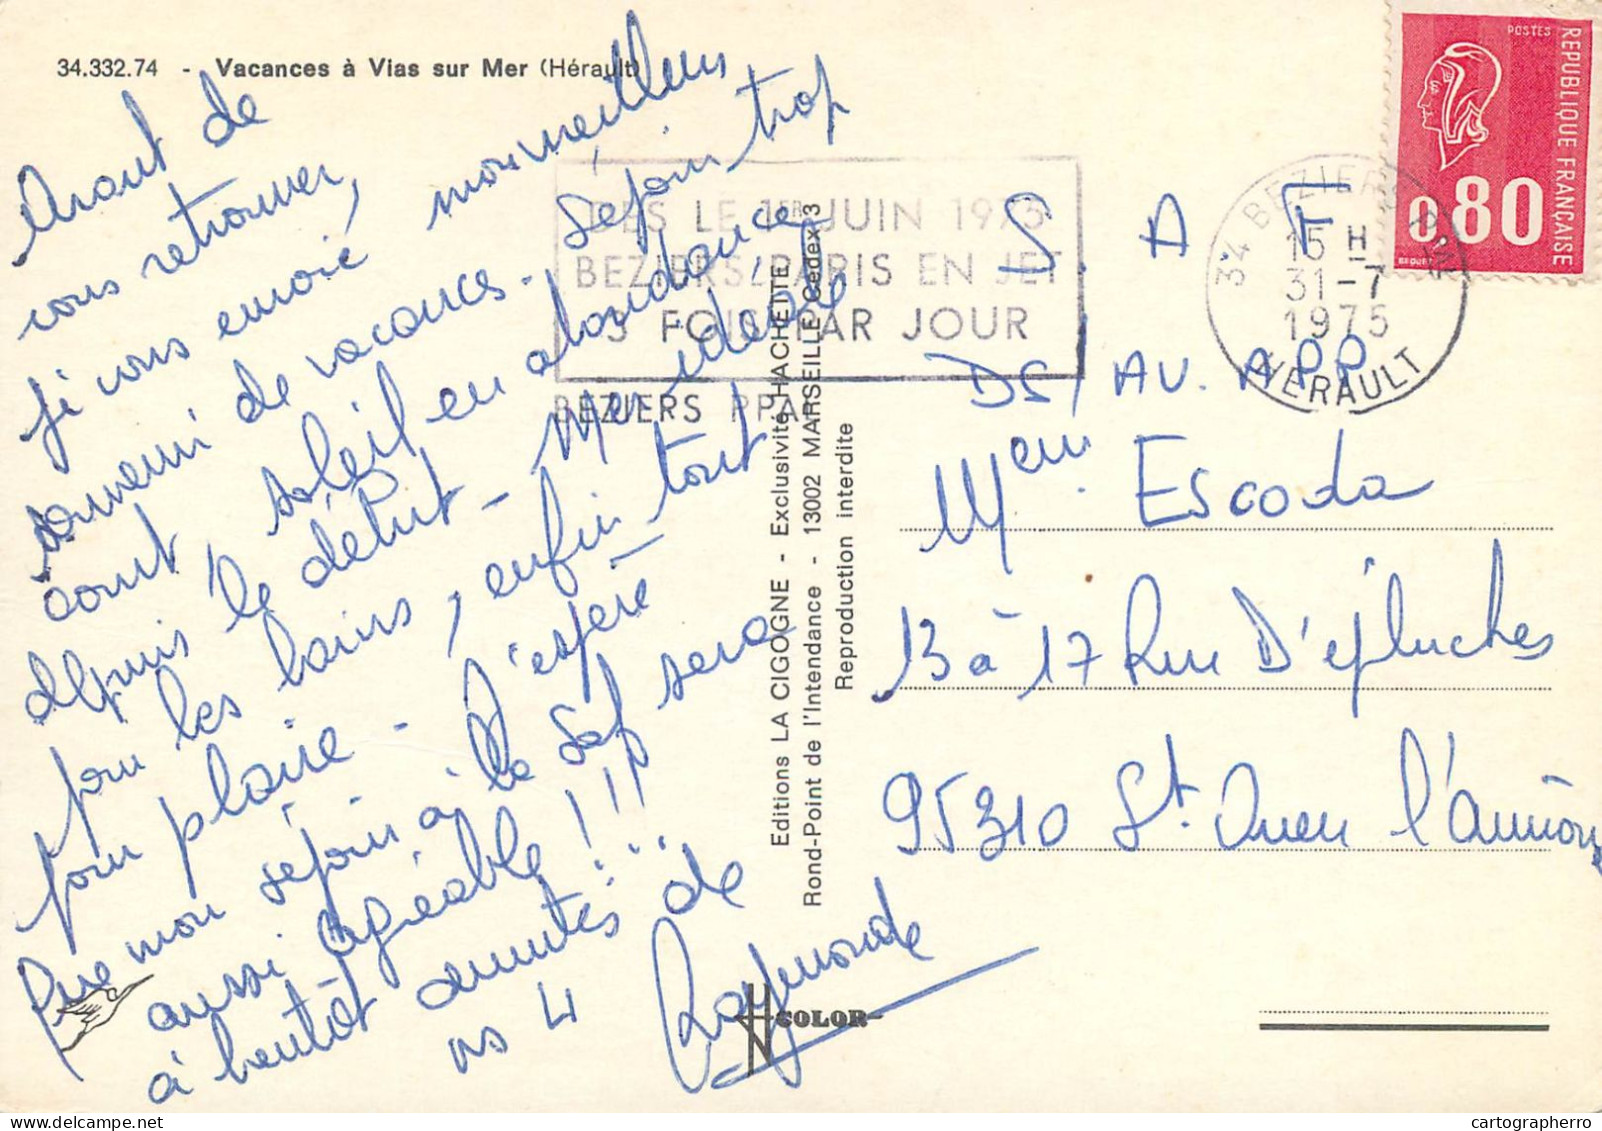 34.332.74 - Vacances à Vias sur Mer (Hérault)
Avant de
vous retrouver,
je vous envoie mon meilleur
souvenir de vacances. Séjour trop
court, soleil en abondance
depuis le début - Mer idéale
pour les bains, enfin tout
pour plaire - J'espère
que mon séjour à la Saf sera
aussi agréable !!!...
à bientôt amitiés de
ns 4 Raymonde
Editions LA CIGOGNE - Exclusivité HACHETTE
Rond-Point de l'Intendance - 13002 MARSEILLE Cedex 3
Reproduction interdite
COLOR
DES LE 1ER JUIN 1975
BEZIERS/PARIS EN JET
3 FOIS PAR JOUR
BEZIERS PPAL
34 BEZIERS PPAL
15 H
31-7
1975
HERAULT
POSTES
REPUBLIQUE FRANÇAISE
0,80
BEQUET
S. A F
DS/AV. APP
Mem Escoda
13 à 17 Rue D'épluches
95310 St. Ouen l'aumône
cartographerro